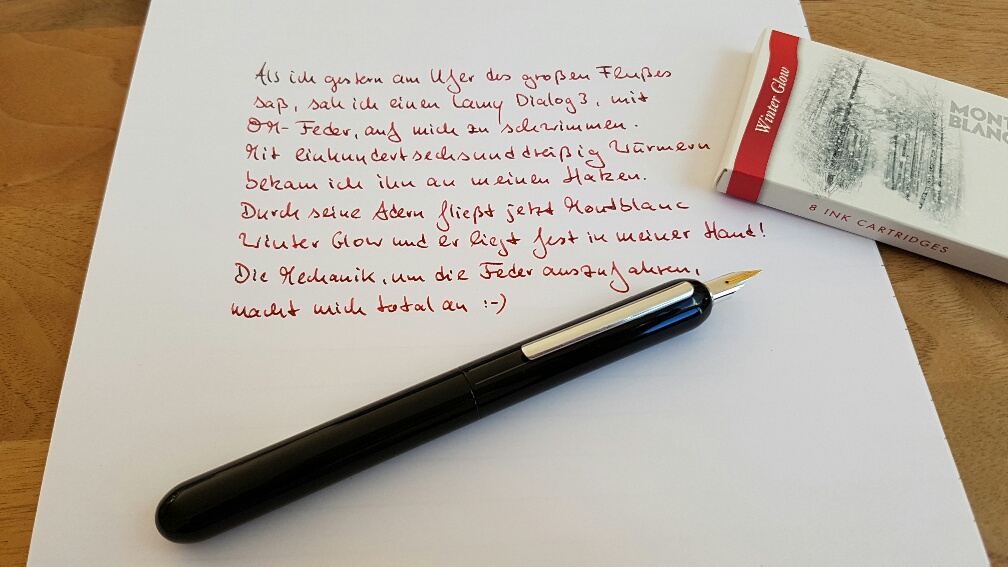 Als ich gestern am Ufer des großen Flußes
saß, sah ich einen Lamy Dialog 3, mit
OM-Feder, auf mich zu schwimmen.
Mit einhundertsechsunddreißig Würmern
bekam ich ihn an meinen Haken.
Durch seine Adern fließt jetzt Montblanc
Winter Glow und er liegt fest in meiner Hand!
Die Mechanik, um die Feder auszufahren,
macht mich total an :-)
Winter Glow
MONT
BLANC
8 INK CARTRIDGES